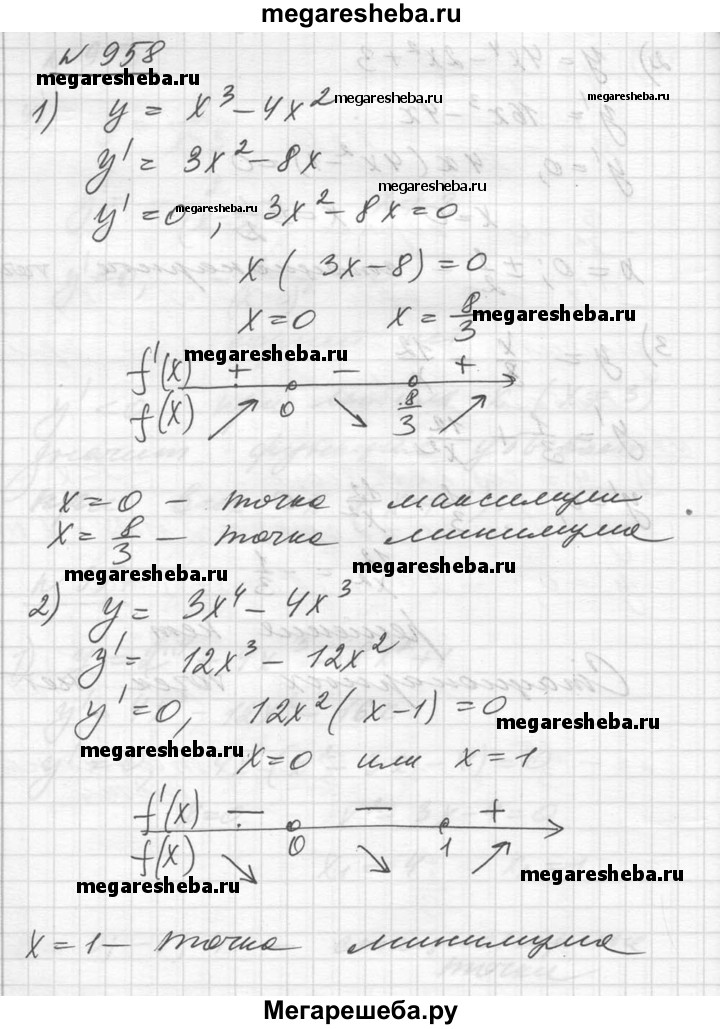 megaresheba.ru
№ 958
megaresheba.ru
1) y = x³ - 4x² megaresheba.ru
megaresheba.ru
y' = 3x² - 8x
megaresheba.ru
y' = 0 megaresheba.ru, 3x² - 8x = 0
x(3x - 8) = 0
x = 0 x = 8/3 megaresheba.ru
megaresheba.ru
f'(x) + - +
f(x) ↗ 0 ↘ 8/3 ↗
x = 0 – точка максимума
x = 8/3 – точка минимума
megaresheba.ru megaresheba.ru
2) y = 3x⁴ - 4x³
y' = 12x³ - 12x²
y' = 0, 12x²(x - 1) = 0
megaresheba.ru
megaresheba.ru
x = 0 или x = 1
f'(x) - - +
f(x) ↘ 0 ↘ 1 ↗
megaresheba.ru megaresheba.ru
x = 1 – точка минимума
Мегарешеба.ру